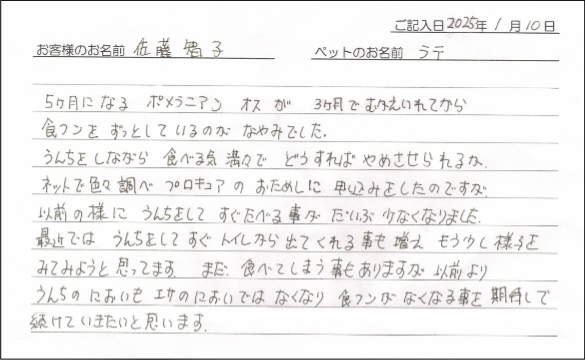 ご記入日2025年1月10日
お客様のお名前 佐藤 智子 ペットのお名前 ラテ
5ヶ月になる ポメラニアン オスが 3ヶ月でむかえいれてから
食フンを ずっとしているのが なやみでした.
うんちをしながら 食べる気満々で どうすれば やめさせられるか.
ネットで色々調べ プロキュアの おためしに 申込みをしたのですが
以前の様に うんちをして すぐたべる事が だいぶ少なくなりました.
最近では うんちをして すぐ トイレから出てくれる事も増え もう少し様子を
みてみようと思ってます まだ. 食べてしまう事もありますが 以前より
うんちの においも エサのにおいでは なくなり 食フンが なくなる事を 期待して
続けていきたいと思います.